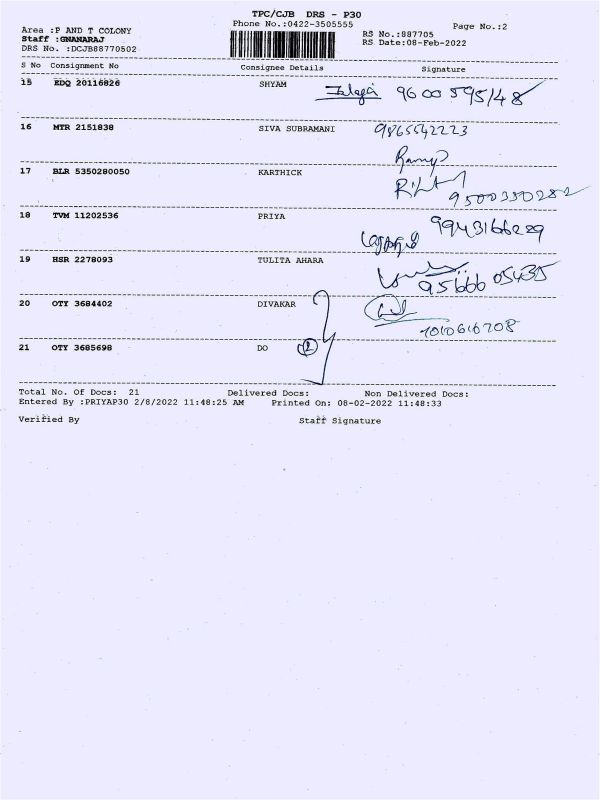 TPC/CJB DRS - P30
Phone No.:0422-3505555
Page No.:2
Area :P AND T COLONY
Staff :GNANARAJ
DRS No. :DCJB88770502
RS No.:887705
RS Date:08-Feb-2022
S No Consignment No Consignee Details Signature
15 EDQ 20116826 SHYAM 9600595148
16 MTR 2151838 SIVA SUBRAMANI 9865542223
17 BLR 5350280050 KARTHICK 9500350282
18 TVM 11202536 PRIYA 9943166229
19 HSR 2278093 TULITA AHARA 9566605435
20 OTY 3684402 DIVAKAR
21 OTY 3685698 DO 2
Total No. Of Docs: 21 Delivered Docs: Non Delivered Docs:
Entered By :PRIYAP30 2/8/2022 11:48:25 AM Printed On: 08-02-2022 11:48:33
Verified By Staff Signature